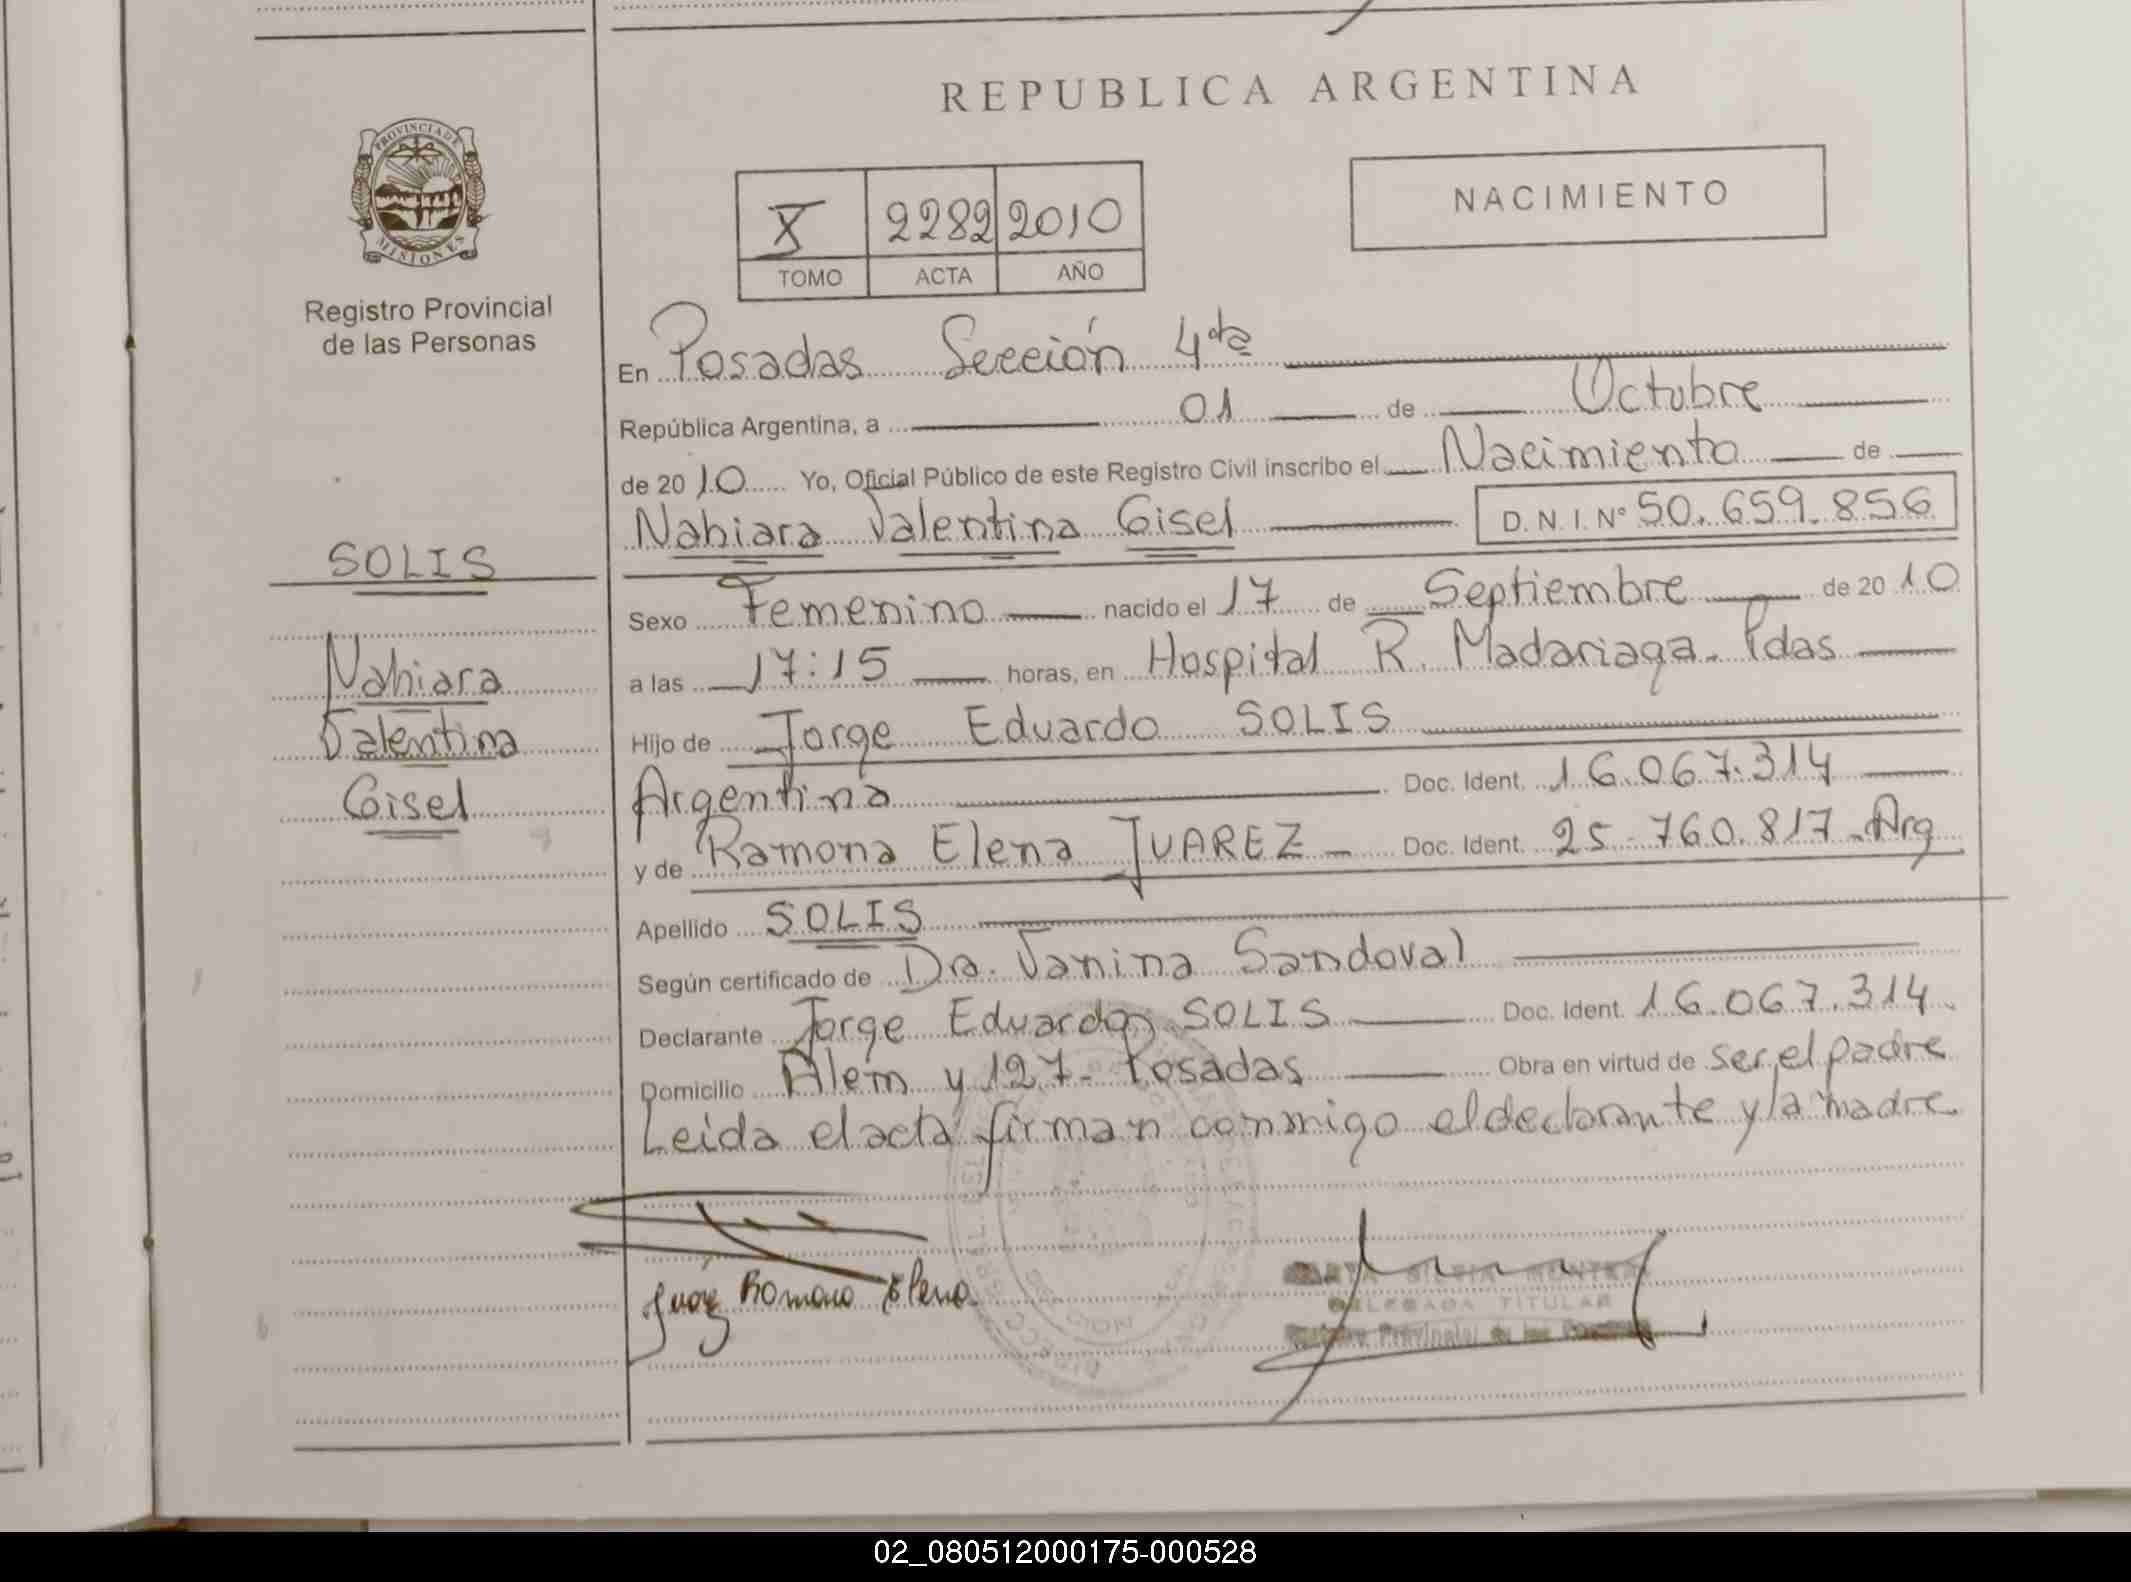 REPUBLICA ARGENTINA
PROVINCIA DE
MISIONES
Registro Provincial
de las Personas
X 2282 2010
TOMO ACTA AÑO
NACIMIENTO
En Posadas Sección 4ta
República Argentina, a 01 de Octubre
de 2010 Yo, Oficial Público de este Registro Civil inscribo el Nacimiento de
Nahiara Valentina Gisel D.N.I. Nº 50.659.856
SOLIS
Nahiara
Valentina
Gisel
Sexo Femenino nacido el 17 de Septiembre de 2010
a las 17:15 horas, en Hospital R. Madariaga - Pdas
Hijo de Jorge Eduardo SOLIS
Argentina Doc. Ident. 16.067.314
y de Ramona Elena JUAREZ - Doc. Ident. 25.760.817 - Arg
Apellido SOLIS
Según certificado de Dra. Vanina Sandoval
Declarante Jorge Eduardo SOLIS Doc. Ident. 16.067.314
Domicilio Alem y 127 - Posadas Obra en virtud de ser el padre
Leida el acta firman conmigo el declarante y la madre
Romona Elena
DELEGADA TITULAR
Provincial de las
02_080512000175-000528